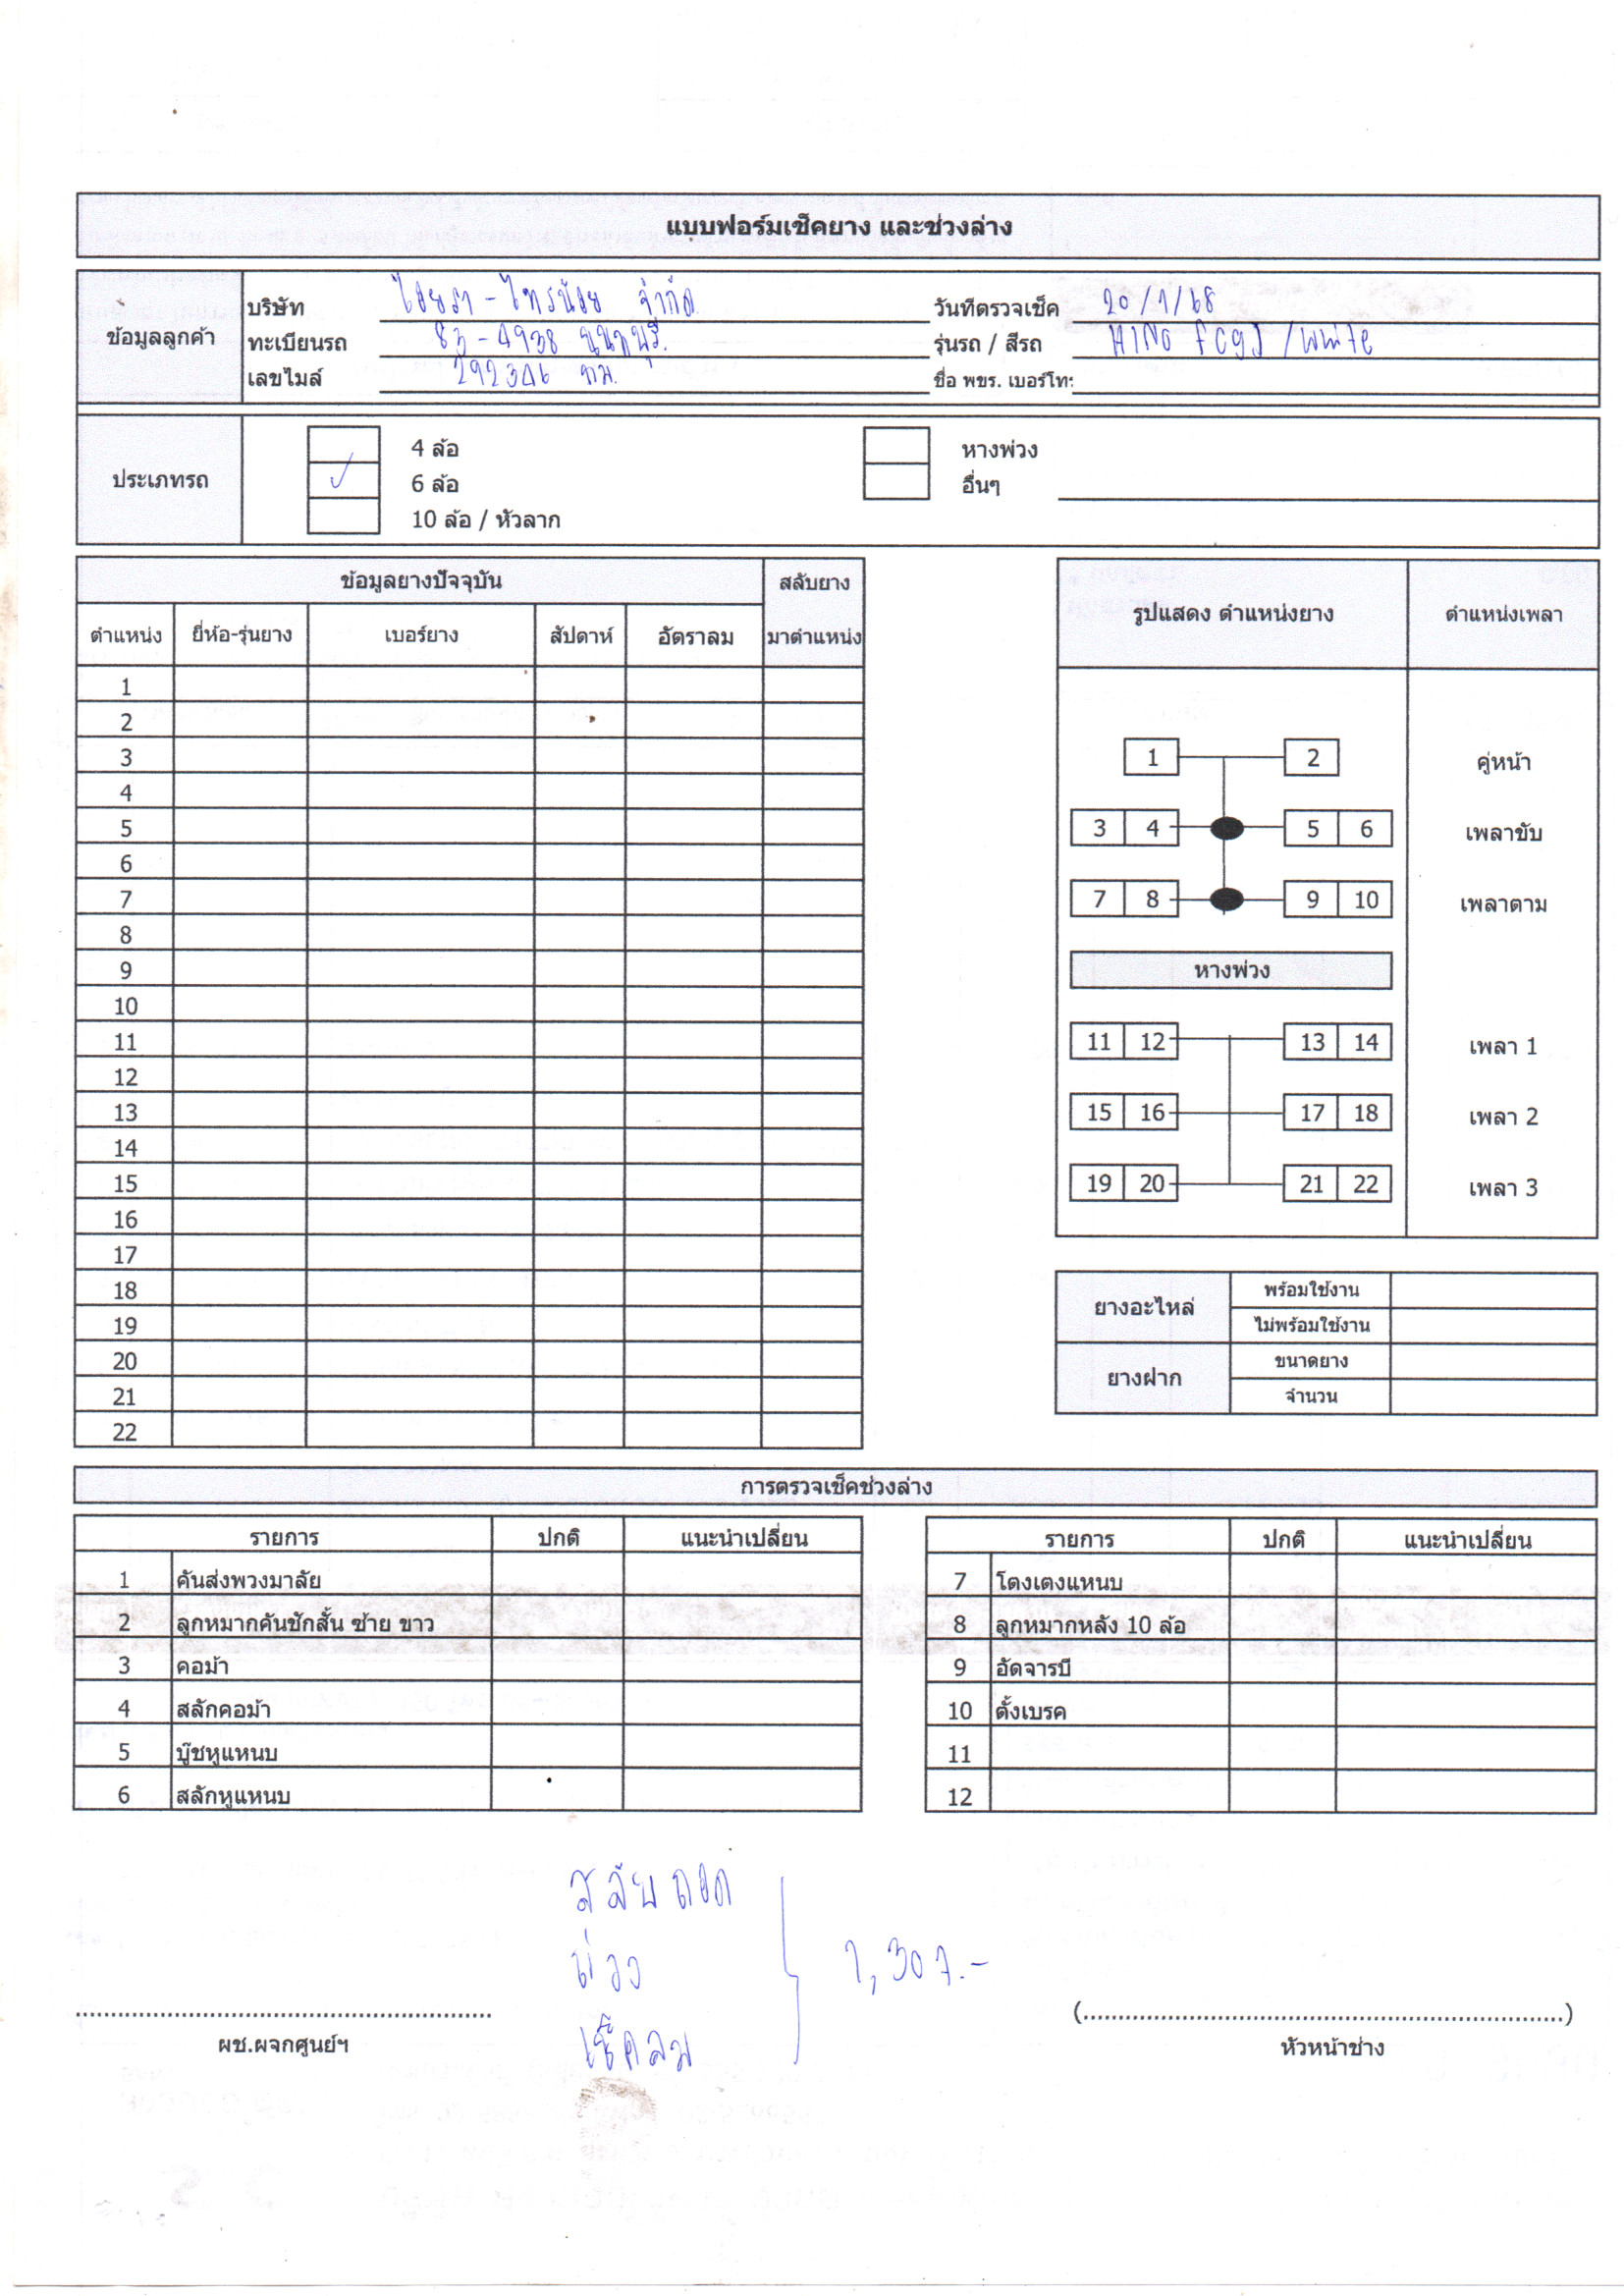 แบบฟอร์มเช็คยาง และช่วงล่าง
ข้อมูลลูกค้า
บริษัท ไอยรา - ไทรน้อย จำกัด วันที่ตรวจเช็ค 20/1/68
ทะเบียนรถ 83-4938 นนทบุรี. รุ่นรถ / สีรถ HINO FC9J / White
เลขไมล์ 292346 กม. ชื่อ พขร. เบอร์โทร
ประเภทรถ
4 ล้อ หางพ่วง
6 ล้อ อื่นๆ
10 ล้อ / หัวลาก
ข้อมูลยางปัจจุบัน สลับยาง
ตำแหน่ง ยี่ห้อ-รุ่นยาง เบอร์ยาง สัปดาห์ อัตราลม มาตำแหน่ง
1
2
3
4
5
6
7
8
9
10
11
12
13
14
15
16
17
18
19
20
21
22
รูปแสดง ตำแหน่งยาง ตำแหน่งเพลา
1 2 คู่หน้า
3 4 5 6 เพลาขับ
7 8 9 10 เพลาตาม
หางพ่วง
11 12 13 14 เพลา 1
15 16 17 18 เพลา 2
19 20 21 22 เพลา 3
ยางอะไหล่ พร้อมใช้งาน
ไม่พร้อมใช้งาน
ยางฝาก ขนาดยาง
จำนวน
การตรวจเช็คช่วงล่าง
รายการ ปกติ แนะนำเปลี่ยน
1 คันส่งพวงมาลัย
2 ลูกหมากคันชักสั้น ซ้าย ขาว
3 คอม้า
4 สลักคอม้า
5 บู๊ชหูแหนบ
6 สลักหูแหนบ
รายการ ปกติ แนะนำเปลี่ยน
7 โตงเตงแหนบ
8 ลูกหมากหลัง 10 ล้อ
9 อัดจารบี
10 ตั้งเบรค
11
12
สลับ ถอด
ถ่วง 1,307.-
เช็คลม
ผช.ผจกศูนย์ฯ
(........................)
หัวหน้าช่าง